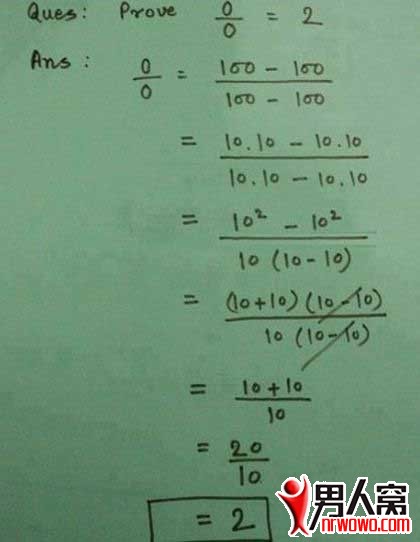 Ques: Prove 0/0 = 2
Ans: 0/0 = (100 - 100)/(100 - 100)
= (10.10 - 10.10)/(10.10 - 10.10)
= (10² - 10²)/(10 (10 - 10))
= ((10+10) (10 - 10))/(10 (10 - 10))
= (10 + 10)/10
= 20/10
= 2
男人窝
nrwowo.com